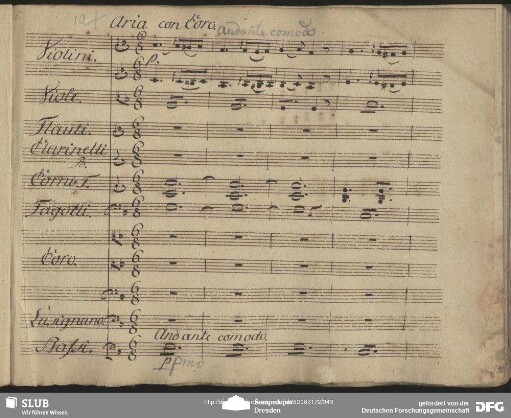 Aria con Coro.
andante comodo
Violini.
Viole.
Flauti.
Clarinetti
Corni F.
Fagotti.
Coro.
Lusignano.
Andante comodo
Bassi.
p
pmo
SLUB
Wir führen Wissen.
Dresden
gefördert von der
Deutschen Forschungsgemeinschaft
DFG